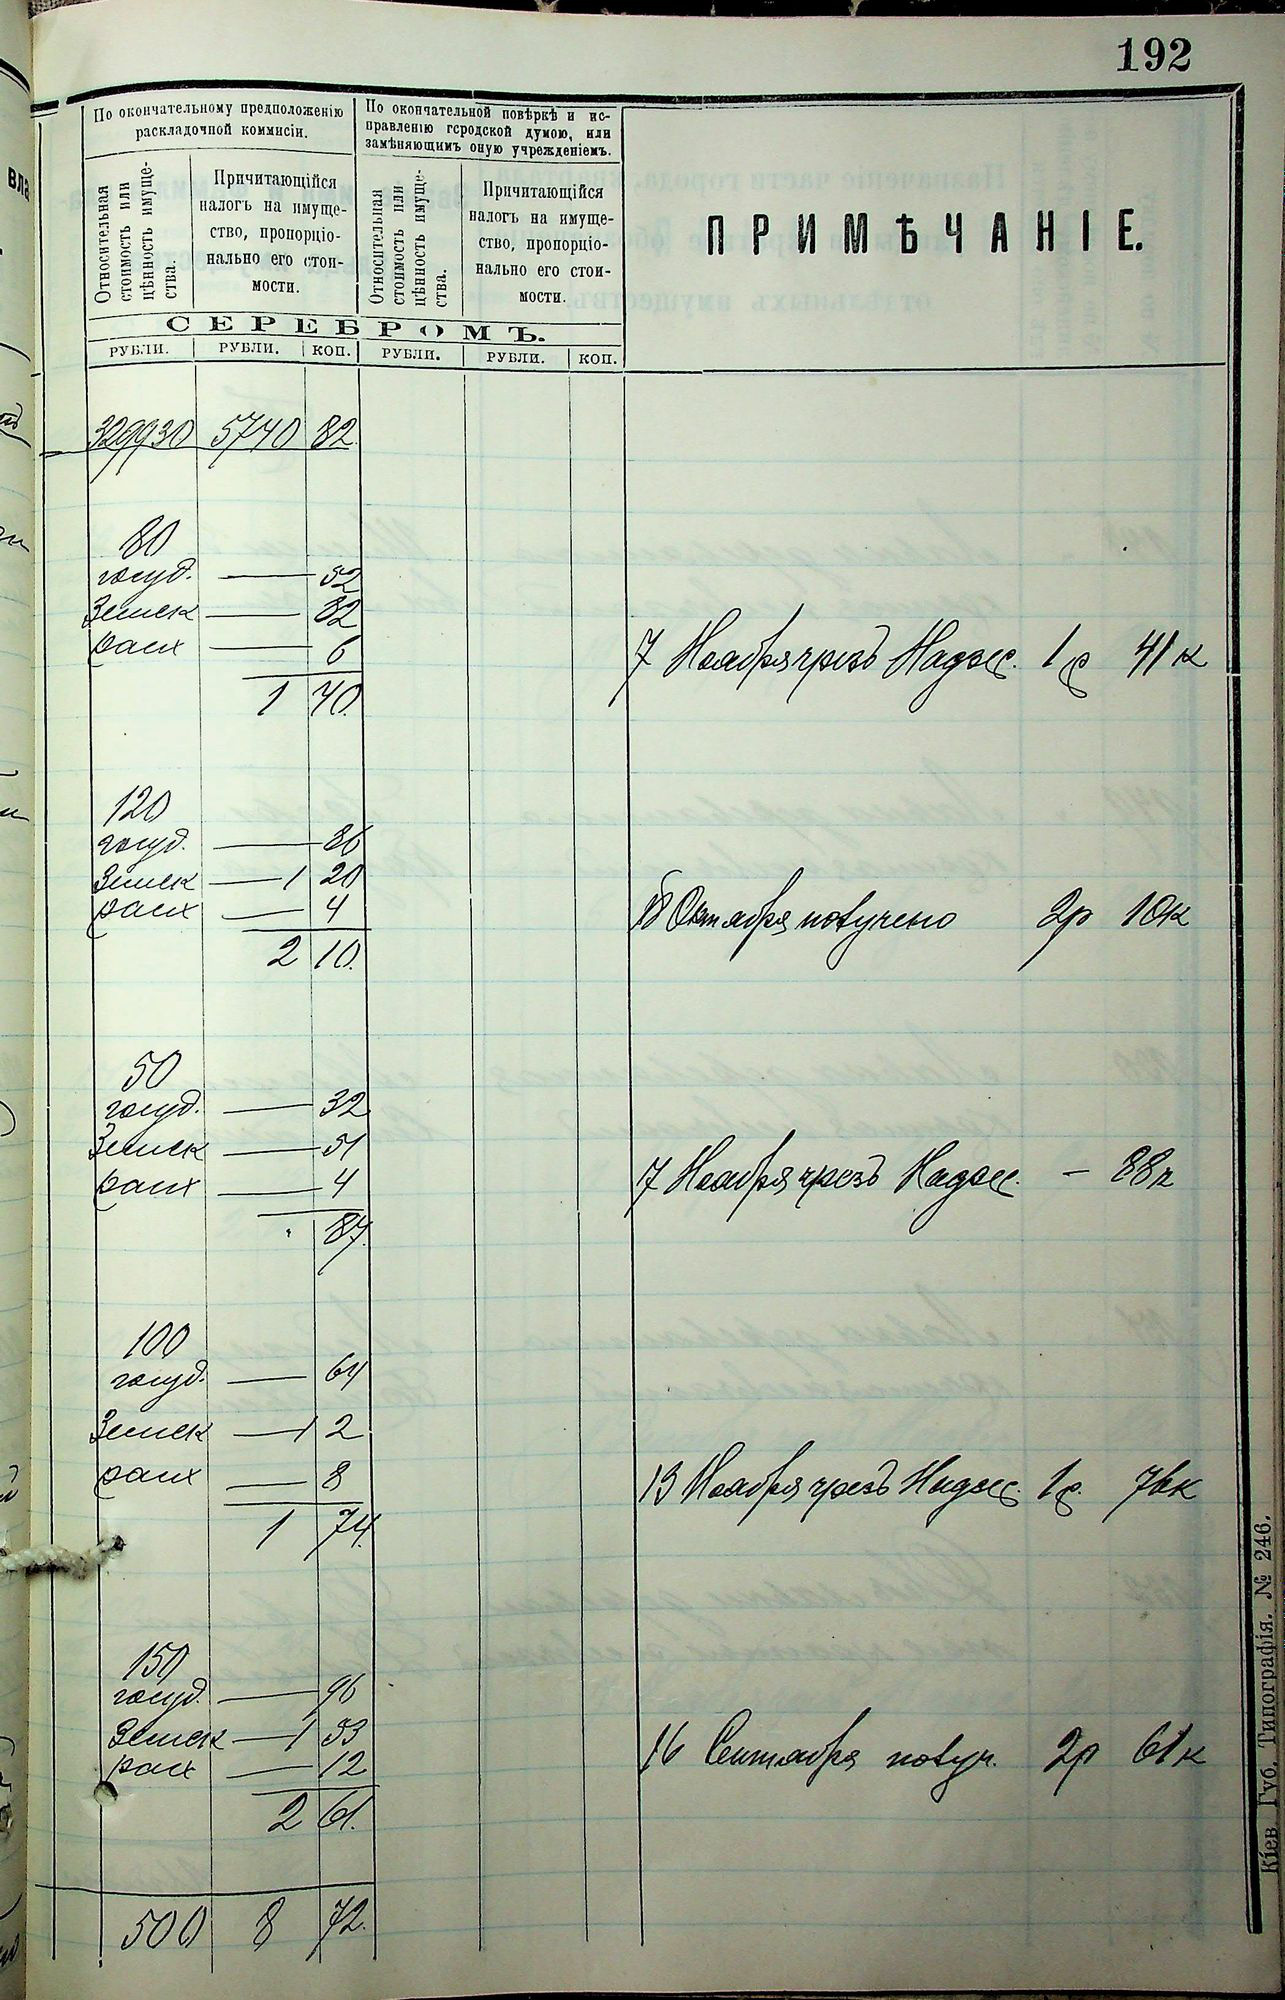 192
По окончательному предположенію
раскладочной коммисіи.
По окончательной повѣркѣ и ис-
правленію городской думою, или
замѣняющимъ оную учрежденіемъ.
Относительная
стоимость или
цѣнность имуще-
ства.
Причитающійся
налогъ на имуще-
ство, пропорціо-
нально его стои-
мости.
Относительная
стоимость или
цѣнность имуще-
ства.
Причитающійся
налогъ на имуще-
ство, пропорціо-
нально его стои-
мости.
ПРИМѢЧАНІЕ.
СЕРЕБРОМЪ.
РУБЛИ. РУБЛИ. КОП. РУБЛИ. РУБЛИ. КОП.
329930 5740 82.
80
госуд. — 82
Земск — 82
6
7 Ноября чрезъ Надзс. 1 р 41 к
1 70.
120
госуд. — 86
Земск — 1 20
4
18 Октября получено 2р 10к
2 10.
50
госуд. — 32
Земск — 51
4
7 Ноября чрезъ Надзс. — 88к
87.
100
госуд. — 64
Земск — 1 2
8
13 Ноября чрезъ Надзс. 1р. 76к
1 74.
150
госуд. — 96
Земск — 1 53
12
16 Сентября получ. 2р 61к
2 61.
500 8 72.
Кіев. Губ. Типографія. № 246.